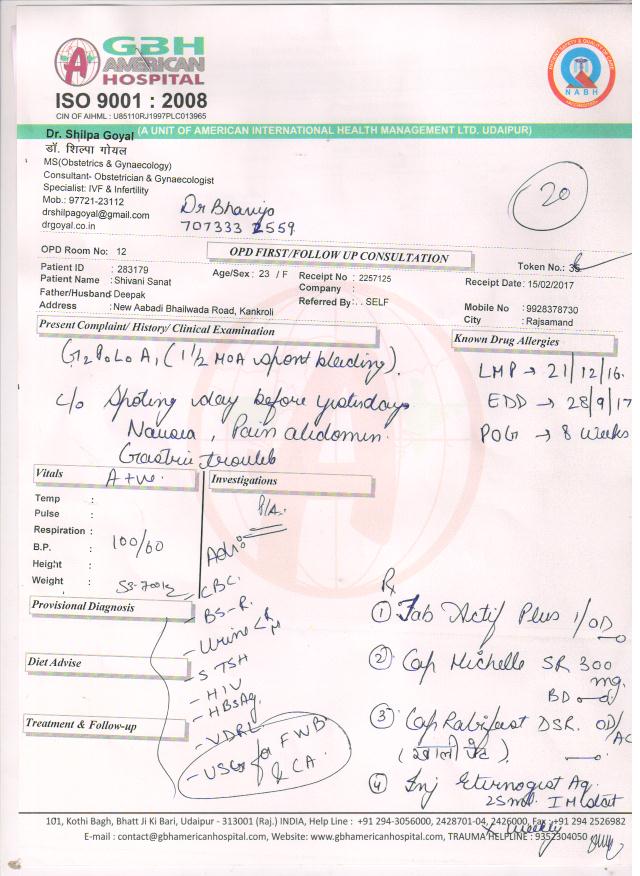 GBH
AMERICAN
HOSPITAL
ISO 9001 : 2008
CIN OF AIHML : U85110RJ1997PLC013965
NABH
(A UNIT OF AMERICAN INTERNATIONAL HEALTH MANAGEMENT LTD. UDAIPUR)
Dr. Shilpa Goyal
डॉ. शिल्पा गोयल
MS(Obstetrics & Gynaecology)
Consultant- Obstetrician & Gynaecologist
Specialist: IVF & Infertility
Mob.: 97721-23112
drshilpagoyal@gmail.com
drgoyal.co.in
707333 2559
20
OPD Room No: 12
OPD FIRST/FOLLOW UP CONSULTATION
Token No.:
Patient ID : 283179
Age/Sex : 23 / F
Receipt No : 2257125
Receipt Date: 15/02/2017
Patient Name : Shivani Sanat
Company :
Father/Husband: Deepak
Referred By: . SELF
Mobile No : 9928378730
Address : New Aabadi Bhailwada Road, Kankroli
City : Rajsamand
Present Complaint/ History/ Clinical Examination
Known Drug Allergies
G2P0L0A1 (1½ MOA spont bleeding).
LMP → 21/12/16.
EDD → 28/9/17
POG → 8 Weeks
c/o Spoting day before yesterday
Nausea, Pain abdomen.
Gastric trouble
Vitals
A +ve
Investigations
P/A.
Temp :
Pulse :
Respiration :
B.P. : 100/60
Height :
Weight :
Adv:
- CBC.
- BS-R.
- Urine < R M
- S TSH
- HIV
- HBsAg.
- VDRL
- USG for FWB & CA.
Provisional Diagnosis
Diet Advise
Treatment & Follow-up
Rx
① Tab Actif Plus 1/OD
② Cap Michelle SR 300 mg.
BD
③ Cap Rabifast DSR. OD/AC
(खाली पेट).
④ Inj
IM stat
x weekly
101, Kothi Bagh, Bhatt Ji Ki Bari, Udaipur - 313001 (Raj.) INDIA, Help Line : +91 294-3056000, 2428701-04, 2426000, Fax : +91 294 2526982
E-mail : contact@gbhamericanhospital.com, Website: www.gbhamericanhospital.com, TRAUMA HELPLINE : 9352304050